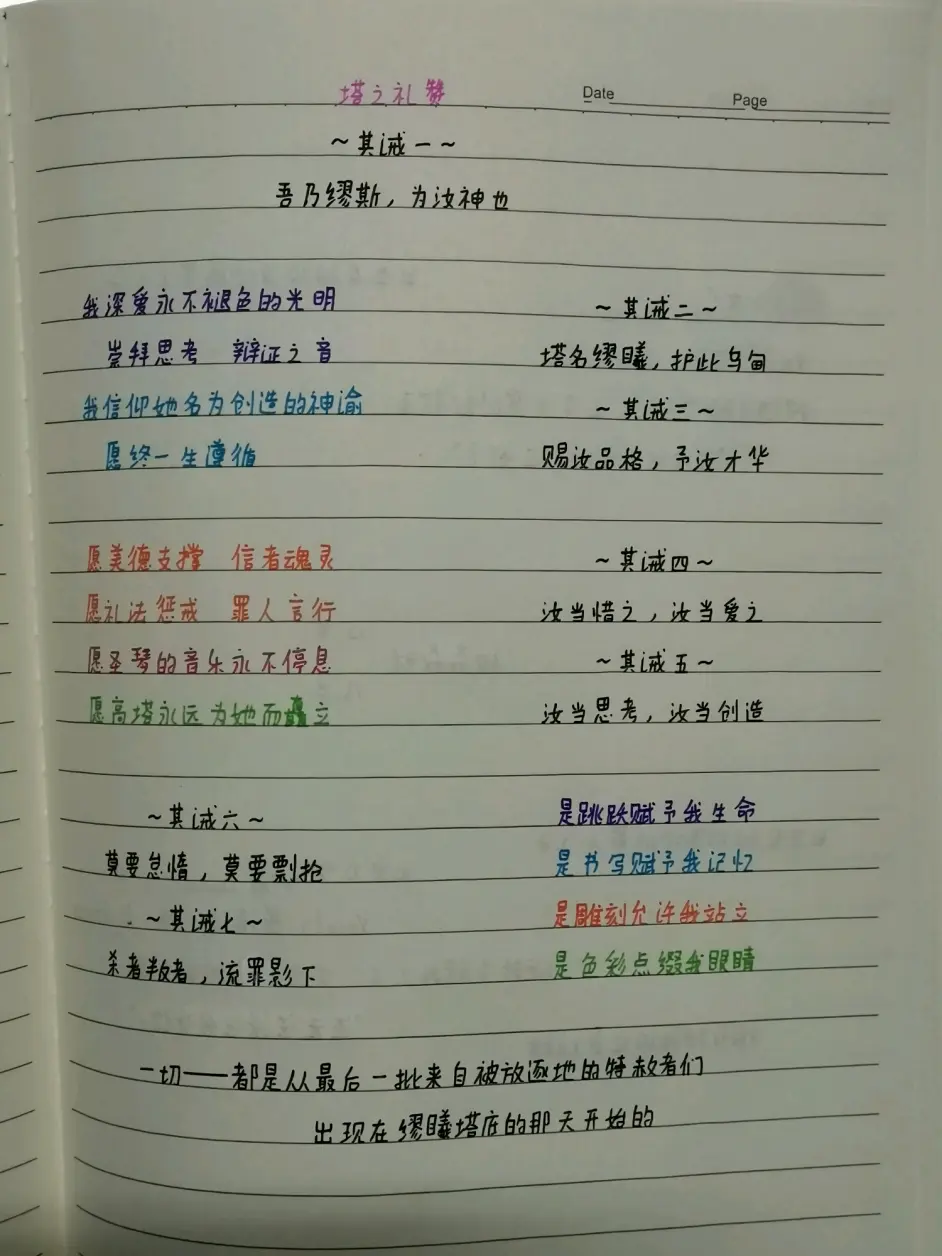 塔之礼赞
Date
Page
~其诫一~
吾乃缪斯，为汝神也
我深爱永不褪色的光明
崇拜思考 辩证之音
我信仰她名为创造的神谕
愿终一生遵循
~其诫二~
塔名缪曦，护此乌甸
~其诫三~
赐汝品格，予汝才华
愿美德支撑 信者魂灵
愿礼法惩戒 罪人言行
愿圣琴的音乐永不停息
愿高塔永远为她而矗立
~其诫四~
汝当惜之，汝当爱之
~其诫五~
汝当思考，汝当创造
~其诫六~
莫要怠惰，莫要剽抢
~其诫七~
杀者叛者，流罪影下
是跳跃赋予我生命
是书写赋予我记忆
是雕刻允许我站立
是色彩点缀我眼睛
一切——都是从最后一批来自被放逐地的特赦者们
出现在缪曦塔底的那天开始的